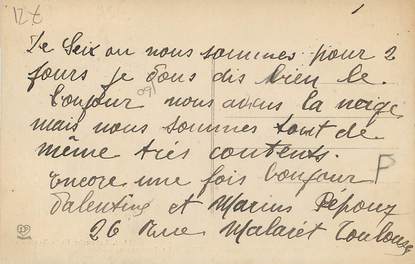 12 €
De Seix ou nous sommes pour 2
jours je vous dis bien le
bonjour nous avons la neige
mais nous sommes tout de
même très contents.
Encore une fois bonjour
Valentine et Marius
26 Rue Malaret Toulouse